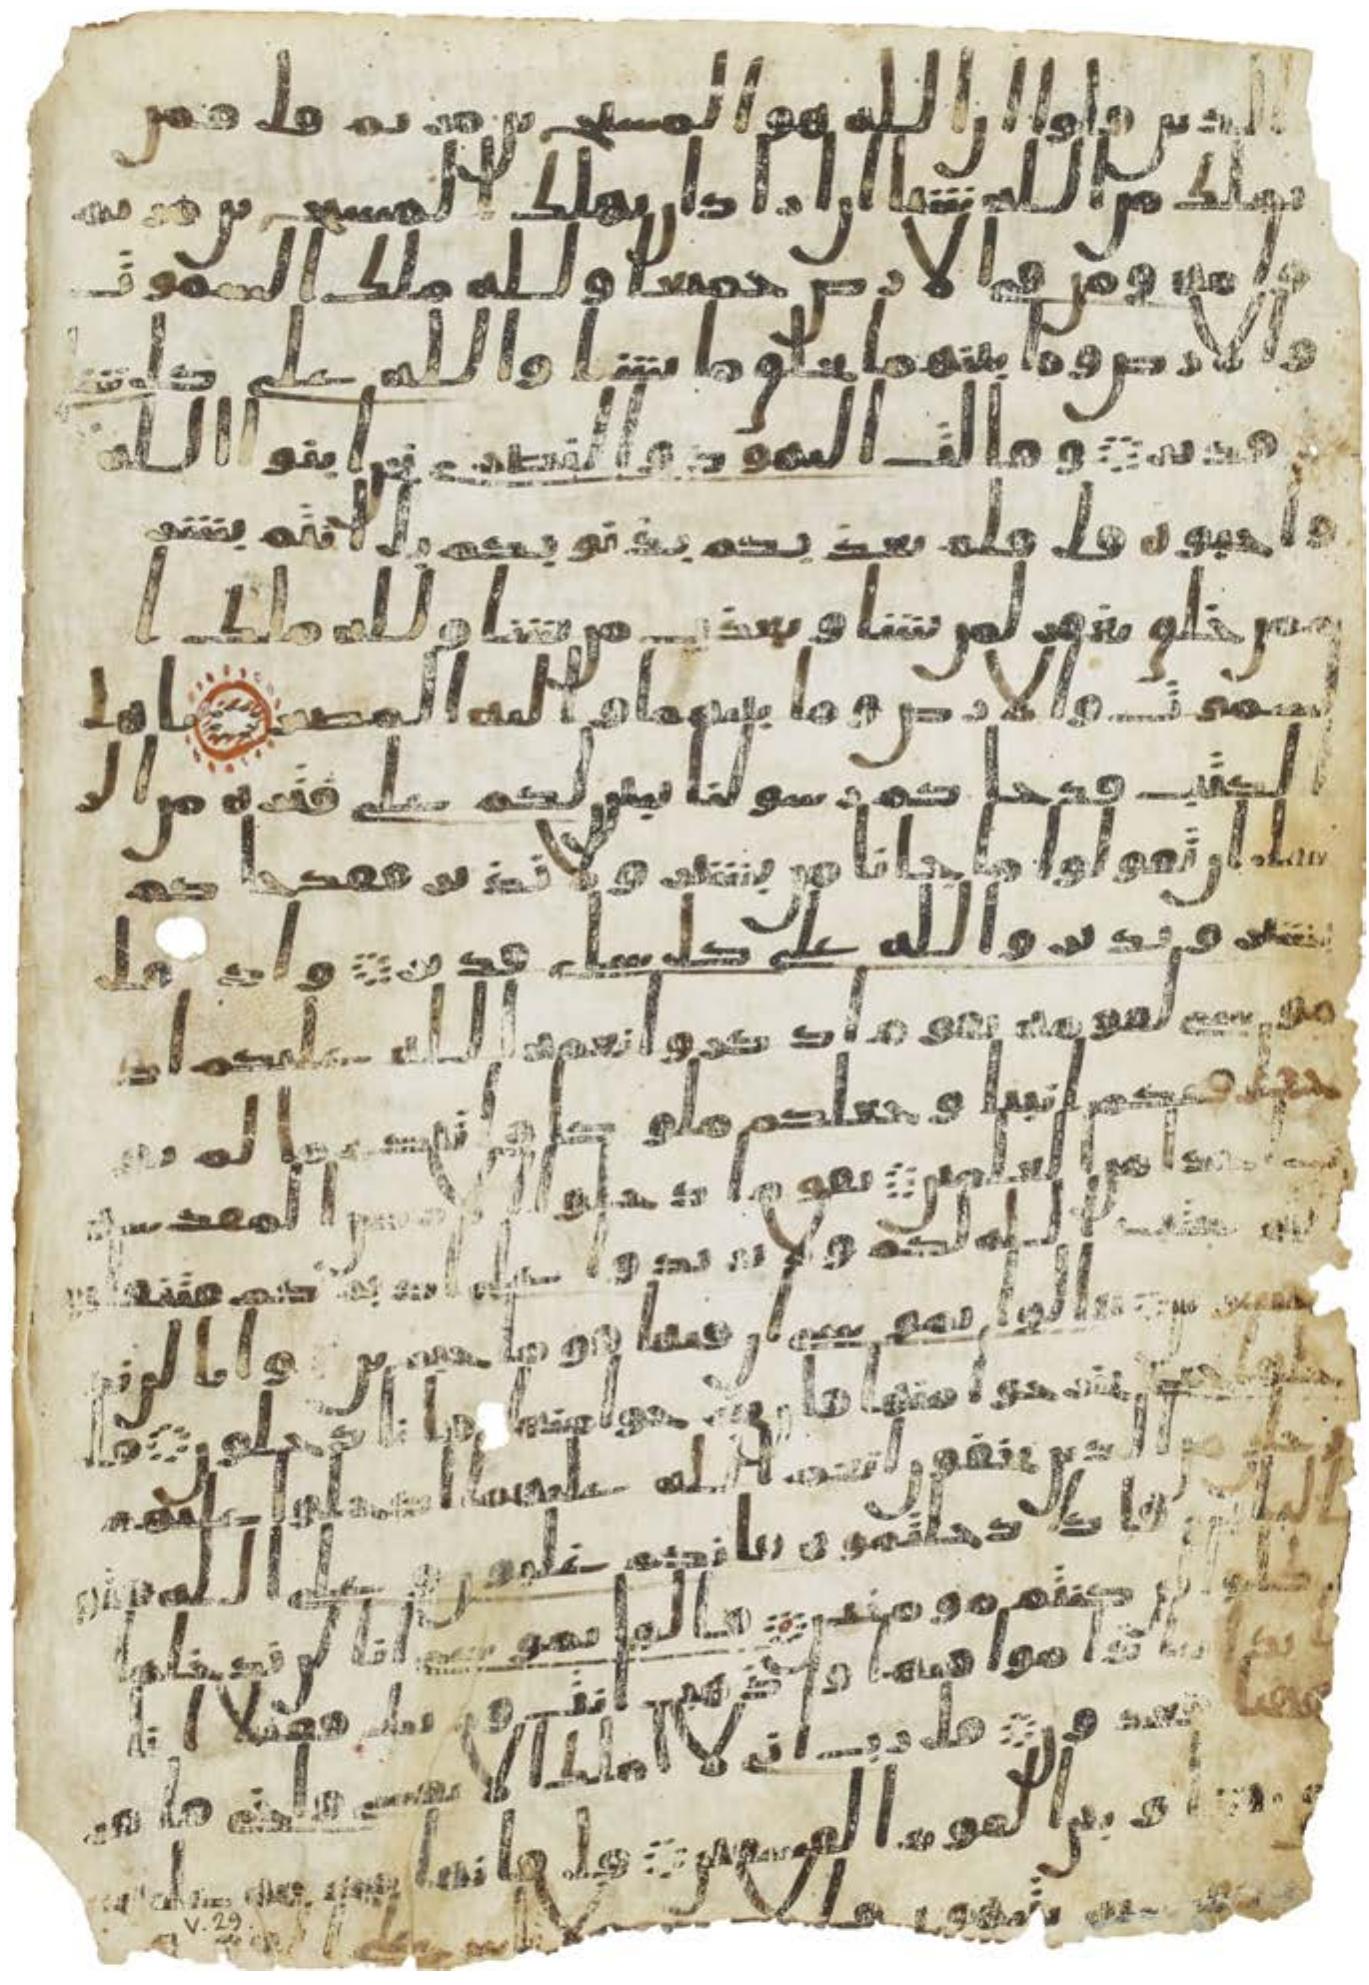 الذين قالوا ان الله هو المسيح بن مريم قل فمن
يملك من الله شيا ان اراد ان يهلك المسيح بن مريم
وامه ومن فى الارض جميعا ولله ملك السموت
والارض وما بينهما يخلق ما يشا والله على كل شى
قدير وقالت اليهود والنصرى نحن ابنوا الله
واحبوه قل فلم يعذبكم بذنوبكم بل انتم بشر
ممن خلق يغفر لمن يشا ويعذب من يشا ولله ملك ا
لسموت والارض وما بينهما واليه المصير ياهل
الكتب قد جاكم رسولنا يبين لكم على فترة من الر
سل ان تقولوا ما جانا من بشير ولا نذير فقد جاكم
بشير ونذير والله على كل شى قدير واذ قل
موسى لقومه يقوم اذكروا نعمه الله عليكم اذ
جعل فيكم انبيا وجعلكم ملوكا واتيكم ما لم يو
ت احدا من العلمين يقوم ادخلوا الارض المقدسه
التى كتب الله لكم ولا ترتدوا على ادبركم فتنقلبو
خسرين قالوا يموسى ان فيها قوما جبرين وانا لن ند
خلها حتى يخرجوا منها فان يخرجوا منها فانا دخلون قا
رجلن من الذين يخفون انعم الله عليهما ادخلوا عليهم
الباب فاذا دخلتموه فانكم غلبون وعلى الله فتو
كلوا ان كنتم مومنين قالوا يموسى انا لن ندخلها
ابدا ما داموا فيها فاذهب انت وربك فقتلا انا
ههنا قعدون قل رب انى لا املك الا نفسى واخى فافر
بيننا وبين القوم الفسقين قل فانها محرمه عليهم
سنه يتيهون فى الارض فلا
V.29.